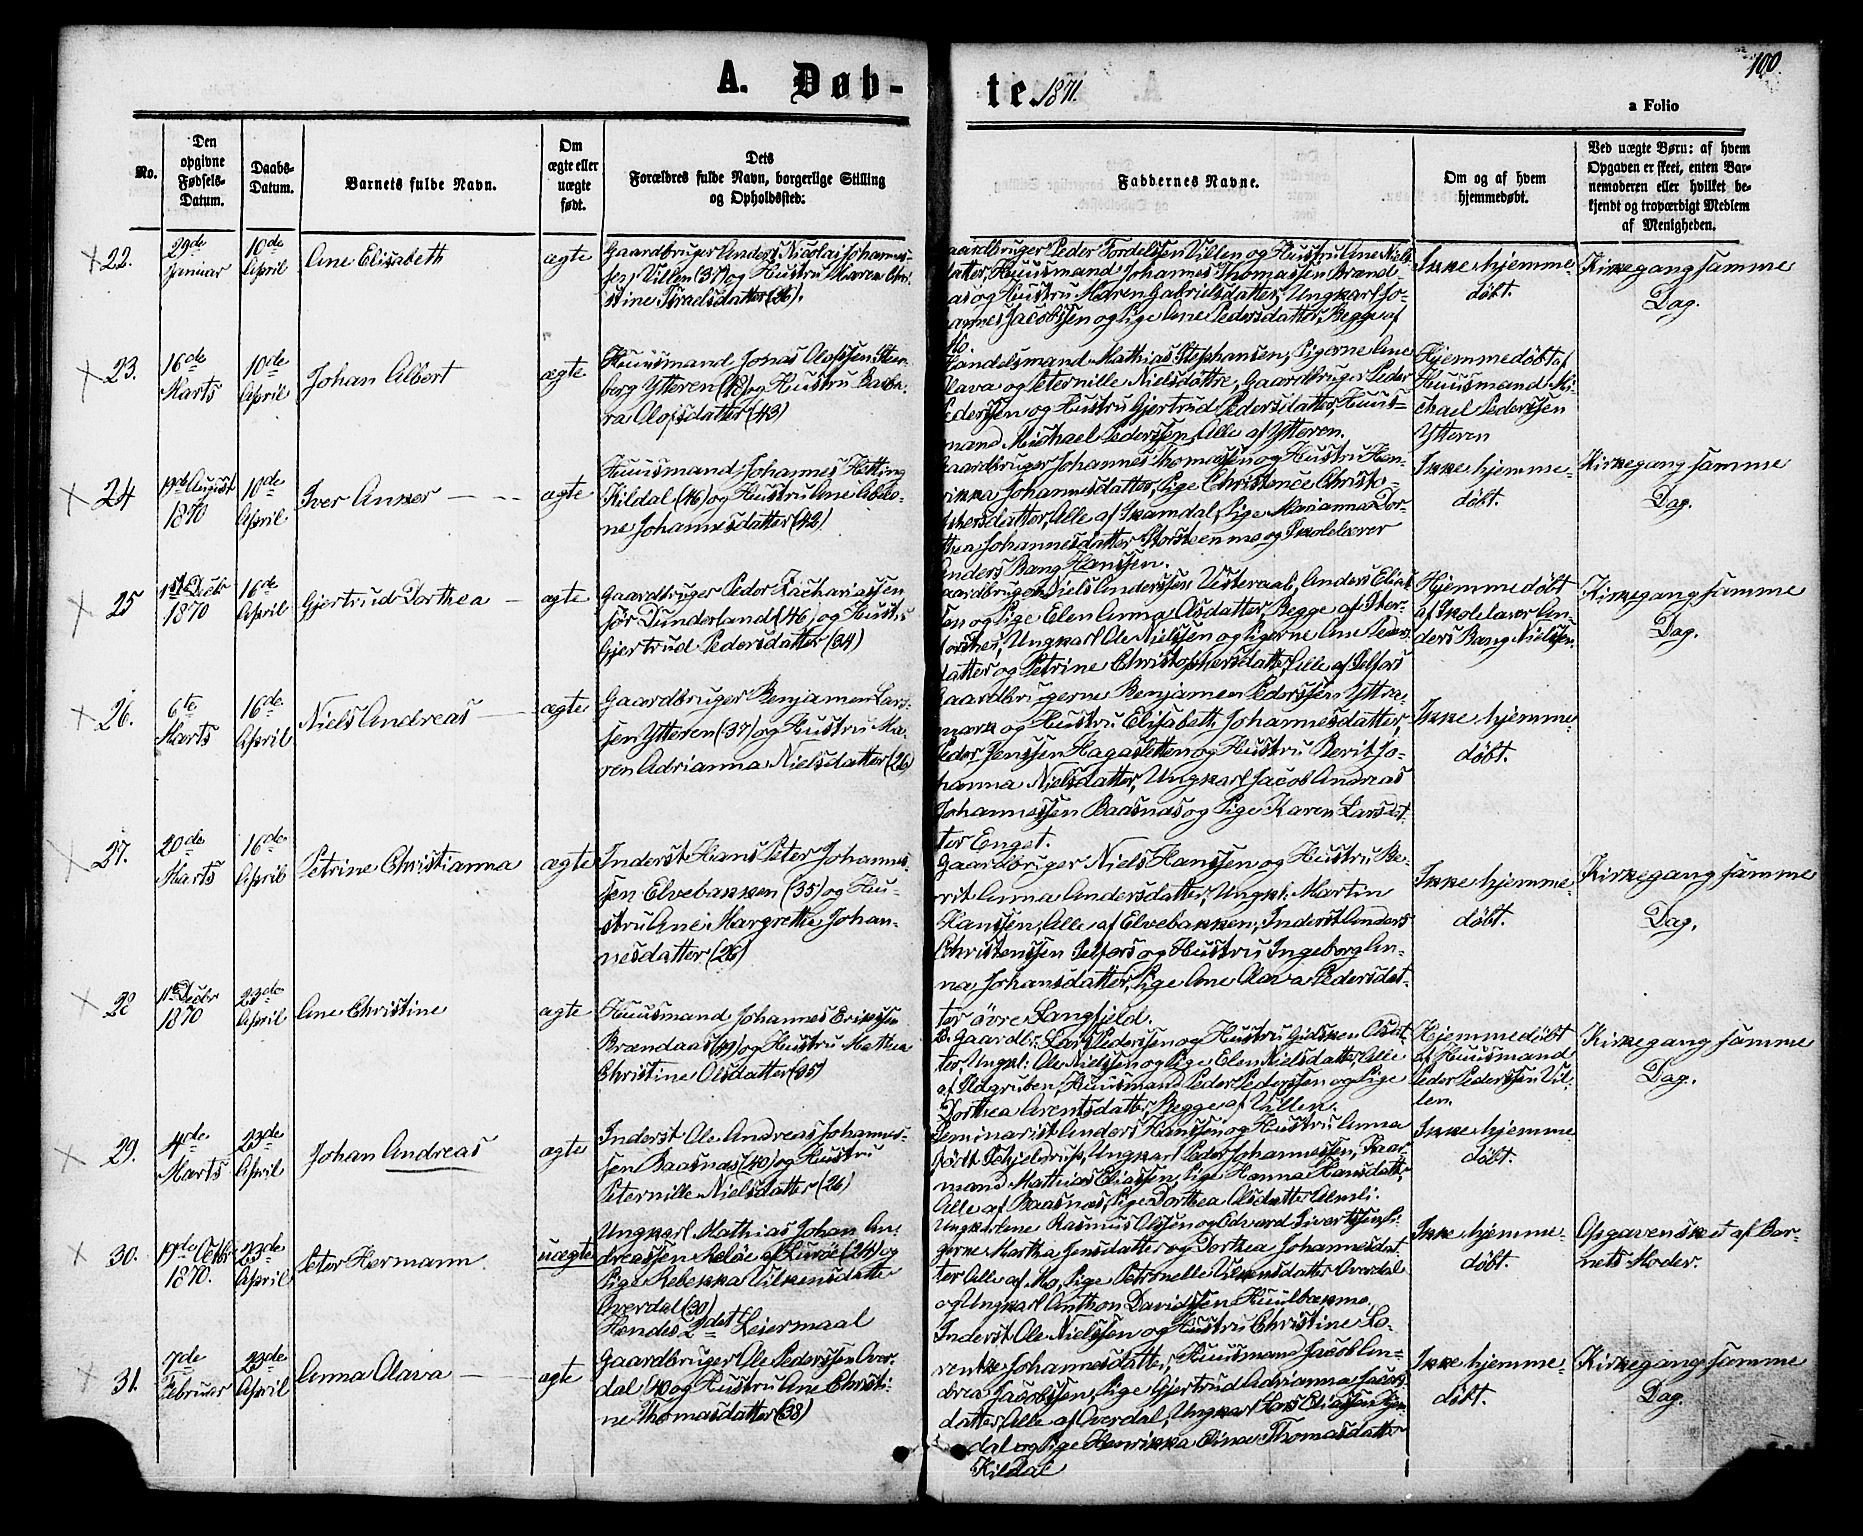 100
A. Døb-
te 1871.
a Folio
No.
Den opgivne Fødsels-Datum.
Daabs-Datum.
Barnets fulde Navn.
Om ægte eller uægte født.
Dets Forældres fulde Navn, borgerlige Stilling og Opholdssted.
Faddernes Navne.
Om og af hvem hjemmedøbt.
Ved uægte Børn: af hvem Opgaven er skeet, enten Barnemoderen eller hvilket bekjendt og troværdigt Medlem af Menigheden.
22.
29de Januar
10de April
Ane Elisabeth
ægte
Gaardbruger Anders Nicolai Johannes-
sen Villen (37) og Hustru Maren Chri-
stine Tordsdatter (26).
Gaardbruger Peder Fordelssen Villen og Hustru Ane Niels-
datter, Huusmand Johannes Thomassen Brænd-
aas og Hustru Maren Gabrielsdatter, Ungkarl Jo-
hannes Jacobssen og Pige Ane Pedersdatter, Begge af
Mo
Ikke hjemme
døbt.
Kirkegang samme
Dag.
23.
16de Marts
10de April
Johan Albert
ægte
Huusmand Jonas Olofssen Sten-
berg Ytteren (48) og Hustru Barba-
ra Olofsdatter (43)
Handelsmand Mathias Stephansen, Pigerne Ane
Olava og Peternille Nielsdøttre, Gaardbruger Peder
Pederssen og Hustru Gjertrud Pedersdatter, Huus-
mand Michael Pederssen, Alle af Ytteren.
Hjemmedøbt af
Huusmand Mi-
chael Pederssen
Ytteren
24
19de August 1870
10de April
Iver Anker
ægte
Huusmand Johannes Hetting
Kildal (46) og Hustru Ane Abelo-
ne Johannesdatter (42)
Gaardbruger Johannes Thomassen og Hustru Hen-
rikka Johannesdatter, Pige Christence Christo-
phersdatter, Alle af Skamdal, Pige Marianna Dor-
thea Johannesdatter Storsteenmo og Skolelærer
Anders Bang Hanssen.
Ikke hjemme-
døbt.
Kirkegang samme
Dag.
25
1ste Decbr 1870
16de April
Gjertrud Dorthea
ægte
Gaardbruger Peder Zachariassen
sør Dunderland (46) og Hustru
Gjertrud Pedersdatter (34)
Gaardbruger Niels Anderssen Vesteraali, Anders Elias-
sen og Pige Elen Anna Olsdatter, Begge af Stor-
forshei, Ungkarl Ole Nielssen og Pigerne Ane Peders-
datter og Petrine Christophersdatter, Alle af Selfors
Hjemmedøbt
af Skolelærer An-
ders Bang Nielssen.
Kirkegang samme
Dag.
26.
6te Marts
16de April
Niels Andreas
ægte
Gaardbruger Benjamen Lars-
sen Ytteren (37) og Hustru Ma-
ren Adrianna Nielsdatter (26)
Gaardbrugerne Benjamen Pederssen Yttre-
mark og Hustru Elisabeth Johannesdatter,
Peder Jenssen Hagasletten og Hustru Berit Jo-
hanna Nielsdatter, Ungkarl Jacob Andreas
Johannessen Baasnæs og Pige Karen Larsdat-
ter Enget.
Ikke hjemme-
døbt.
27.
20de Marts
16de April
Petrine Christianna
ægte
Inderst Hans Peter Johannes-
sen Elvebakken (35) og Hu-
stru Ane Margrethe Johan-
nesdatter (26)
Gaardbruger Niels Hanssen og Hustru Be-
rit Anna Andersdatter, Ungk: Martin
Hanssen, Alle af Elvebakken, Inderst Anders
Christenssen Selfors og Hustru Ingeborg An-
na Johansdatter, Pige Ane Olava Pedersdat-
ter øvre Langfjeld.
Ikke hjemme-
døbt.
Kirkegang samme
Dag.
28
11te Decbr 1870
23de April
Ane Christine
ægte
Huusmand Johannes Erikssen
Brændaas (49) og Hustru Mathea
Christine Olsdatter (35)
Gaardbr: Lars Pederssen og Hustru Gidsken Olsdat-
ter, Ungk: Ole Nielssen og Pige Elen Nielsdatter, Alle
af Ildgruben, Huusmand Peder Pederssen og Pige
Dorthea Arentsdatter, Begge af Villen.
Hjemmedøbt
af Huusmand
Peder Pederssen Vil-
len.
Kirkegang samme
Dag.
29.
4de Marts
23de April
Johan Andreas
ægte
Inderst Ole Andreas Johannes-
sen Baasnæs (40) og Hustru
Peternille Nielsdatter (26)
Seminarist Anders Hanssen og Hustru Anna
født Schjeldrup, Ungkarl Peder Johannessen, Kaar-
mand Mathias Eliassen, Pige Hanna Hansdatter,
Alle af Baasnæs, Pige Dorthea Olsdatter Almli.
Ikke hjemme
døbt.
30.
19de Octbr 1870.
23de April
Peter Hermann.
uægte
Ungkarl Mathias Johan An-
dreassen Meløe af Lurøe (24) og
Pige Rebekka Vilkensdatter
Overdal (30)
Hendes 2det Leiermaal
Ungkarlene Rasmus Olssen og Edvard Sivertssen, Pi-
gerne Martha Jensdatter og Dorthea Johannesdat-
ter Alle af Mo, Pige Petronelle Vilkensdatter Overdal
og Ungkarl Anthon Davidssen Huulbækmo.
Ikke hjemme-
døbt.
Opgaven skeet af Bar-
nets Moder.
31.
7de Februar
23de April
Anna Olava
ægte
Gaardbruger Ole Pederssen Over-
dal (40) og Hustru Ane Christi-
ne Thomasdatter (38)
Inderst Ole Nielssen og Hustru Christine Lo-
rentse Johannesdatter, Huusmand Jacob An-
drea Jacobssen, Pige Gjertrud Adrianna Jacobs-
datter, Alle af Overdal, Ungkarl Lars Eliassen
dal og Pige Henrikka Thomasdatter
Kildal
Ikke hjemme-
døbt.
Kirkegang samme
Dag.